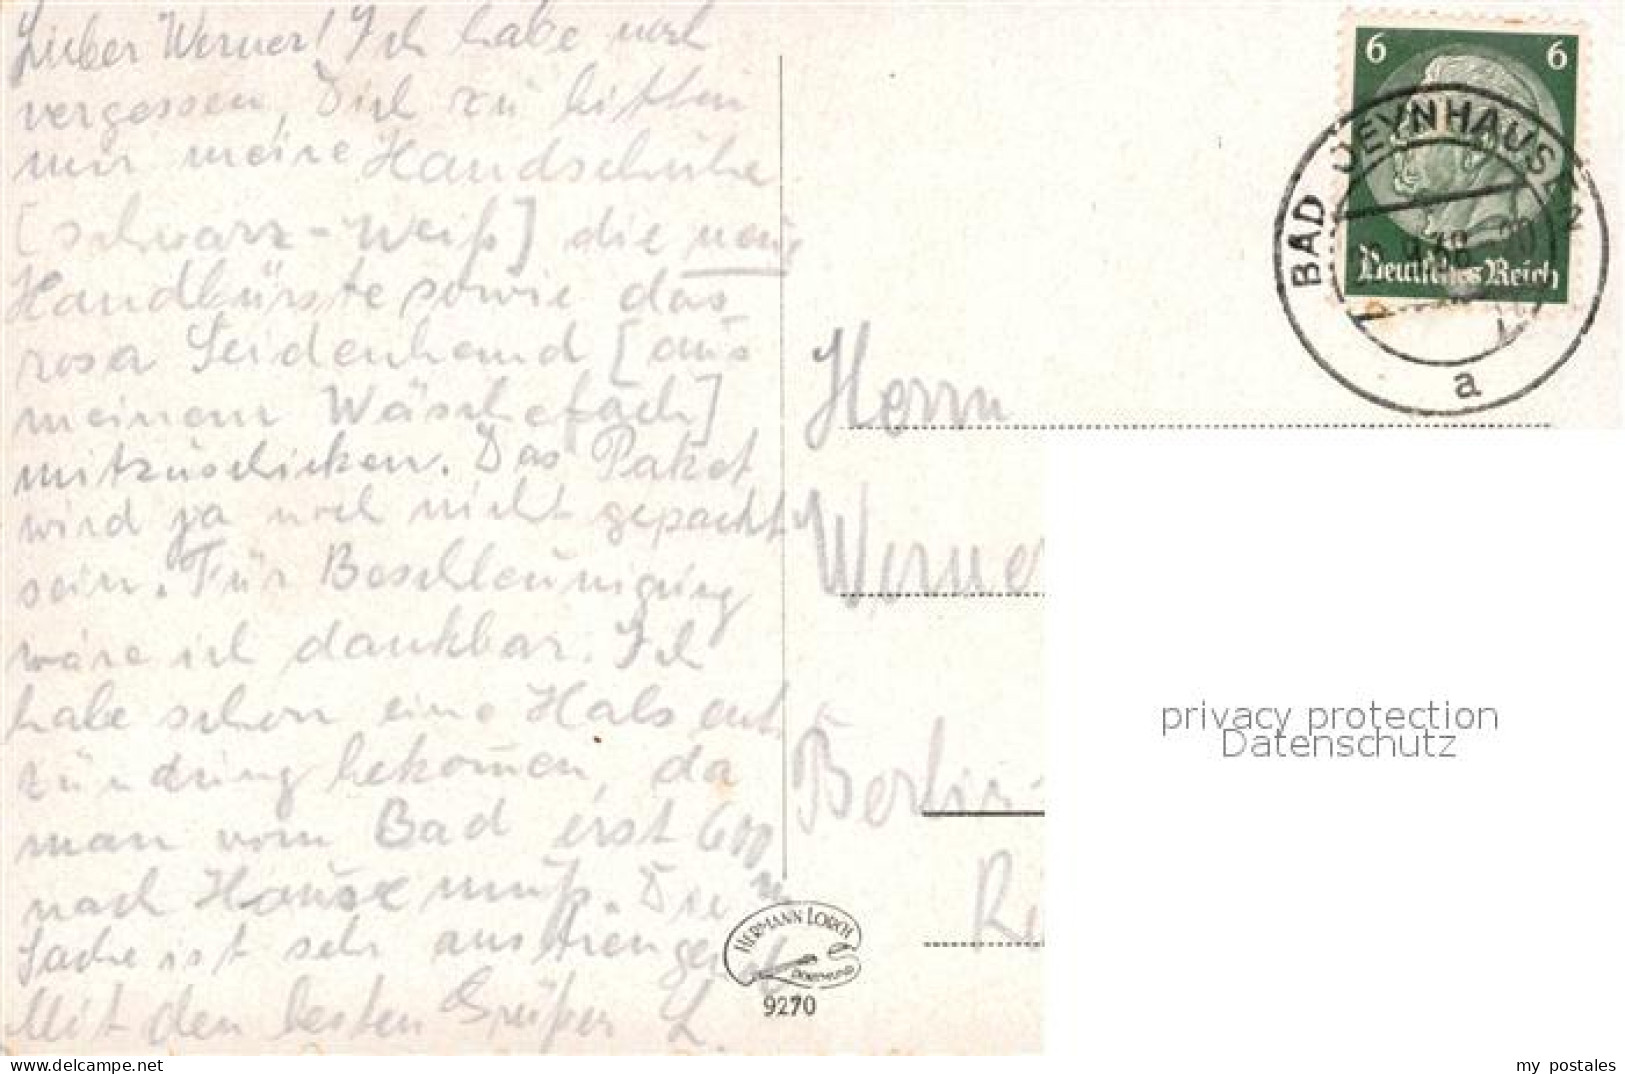 Lieber Werner! Ich habe noch
vergessen, Dich zu bitten
mir meine Handschuhe
[schwarz-weiß] die neue
Handbürste sowie das
rosa Seidenhemd [aus
meinem Wäschefach]
mitzuschicken. Das Paket
wird ja noch nicht gepackt
sein. Für Beschleunigung
wäre ich dankbar. Ich
habe schon eine Halsent
zündung bekomen, da
man vom Bad erst 600 m
nach Hause muß. Die
Sache ist sehr anstrengend
Mit den besten Grüßen L.
6 6
Deutsches Reich
BAD OEYNHAUSEN
a
Herrn
Werner
Berlin-
HERMANN LORCH
DORTMUND
9270
privacy protection
Datenschutz
my postales